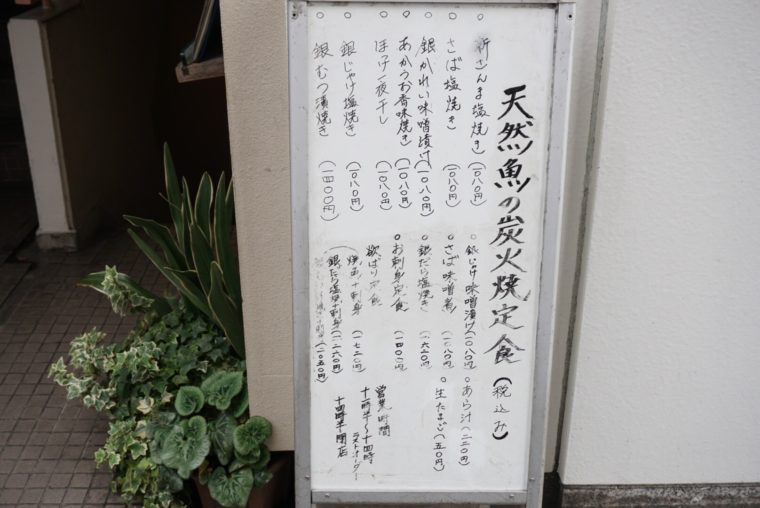 天然魚の炭火焼定食(税込み)
新さんま塩焼き(一〇八〇円)
さば塩焼き(一〇八〇円)
銀かれい味噌漬け(一〇八〇円)
あかうお香味焼き(一〇八〇円)
ほっけ一夜干し(一〇八〇円)
銀じゃけ塩焼き(一〇八〇円)
銀むつ漬焼き(一四〇〇円)
銀じゃけ味噌漬け(一〇八〇円)
さば味噌煮(一〇八〇円)
銀だら塩焼き(一六二〇円)
お刺身定食(一四〇〇円)
欲ばり定食
焼魚+刺身(一七二〇円)
銀だら塩焼+刺身(二二六〇円)
(二〇五〇円)
あら汁(二二〇円)
生たまご(五〇円)
営業時間
十一時半〜十四時
ラストオーダー
十四時半閉店